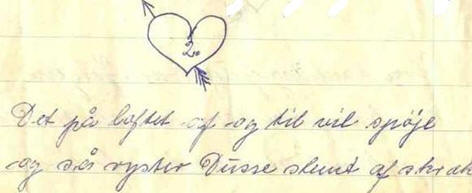 2.
Det på loftet af og til vil spøje
og så ryster Dusse slemt af skræk